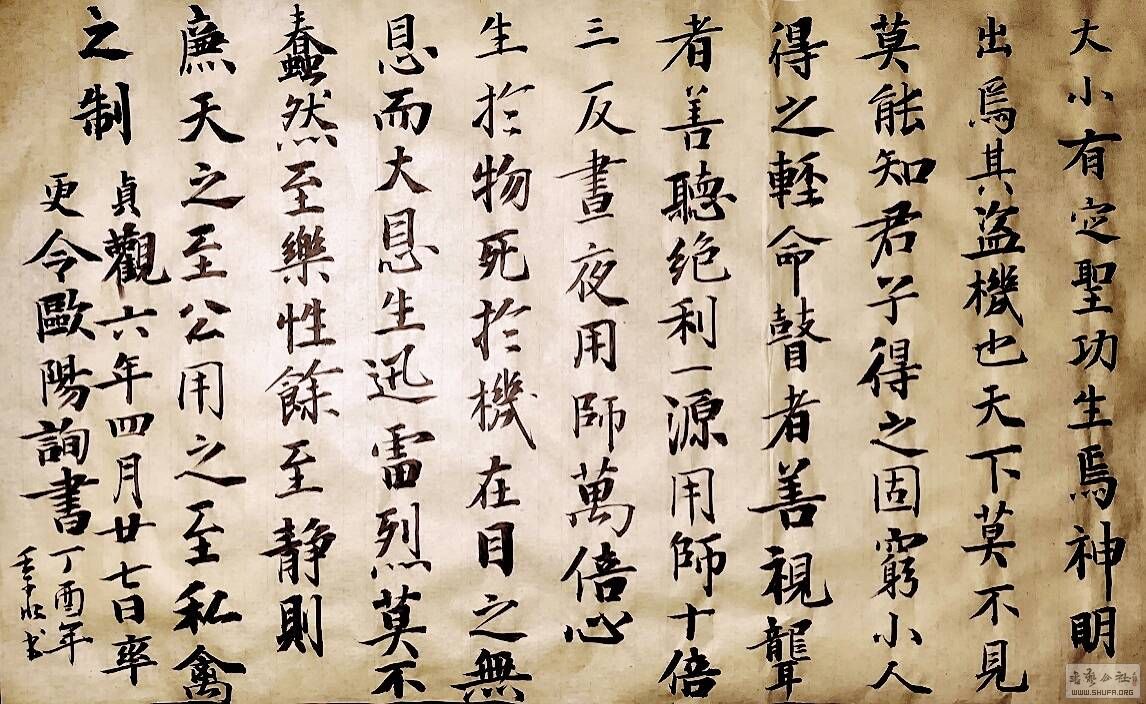 大小有定聖功生焉神明
出焉其盜機也天下莫不見
莫能知君子得之固窮小人
得之輕命瞽者善視聾
者善聽絶利一源用師十倍
三反晝夜用師萬倍心
生於物死於機在目之無
恩而大恩生迅雷烈莫不
蠢然至樂性餘至静則
廉天之至公用之至私禽
之制
貞觀六年四月廿七日率
更令歐陽詢書
丁酉年
WWW.SHUFA.ORG